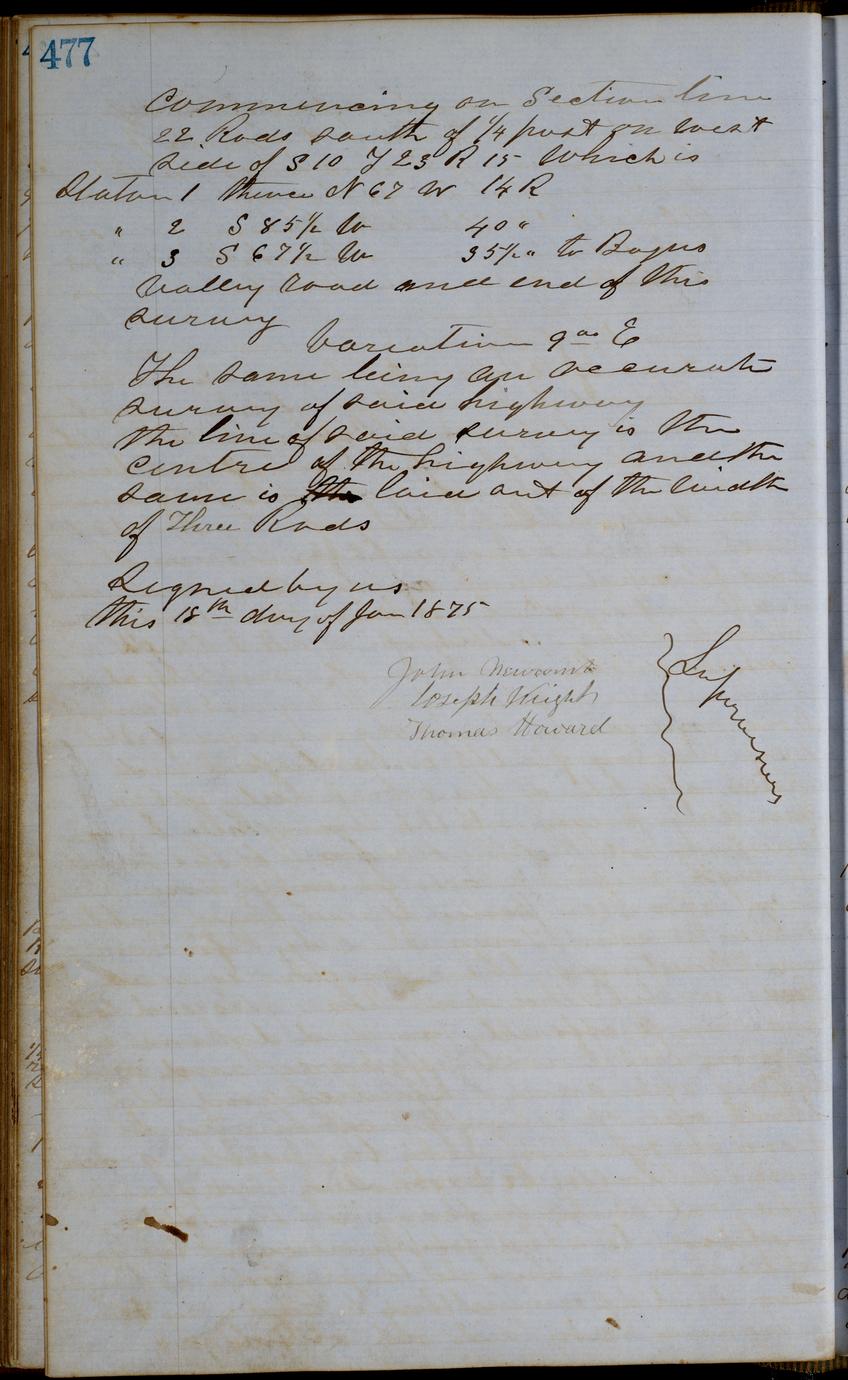 477
Commencing on Section line
22 Rods south of 1/4 post on west
side of S 10 T 23 R 15 Which is
Station 1 thence N 67 W 14 R
" 2 S 85 1/2 W 40 "
" 3 S 67 1/2 W 35 1/2 " to Bogus
Valley road and end of this
survey
Variation 9 E
The same being an accurate
survey of said highway
the line of said survey is the
centre of the highway and the
same is the laid out of the width
of Three Rods
Signed by us
this 18th day of Jan 1875
John Newcomb
Joseph Wright
Thomas Howard
Supervisors